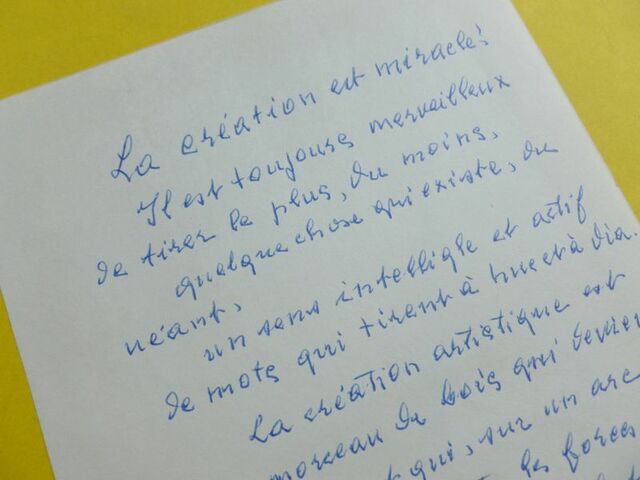 La création est miracle!
Il est toujours merveilleux
de tirer le plus, du moins,
quelque chose qui existe, du
néant,
un sens intelligle et actif
de mots qui tirent à hue et à dia.
La création artistique est
morceau de bois qui devien
qui, sur un arc
les forces